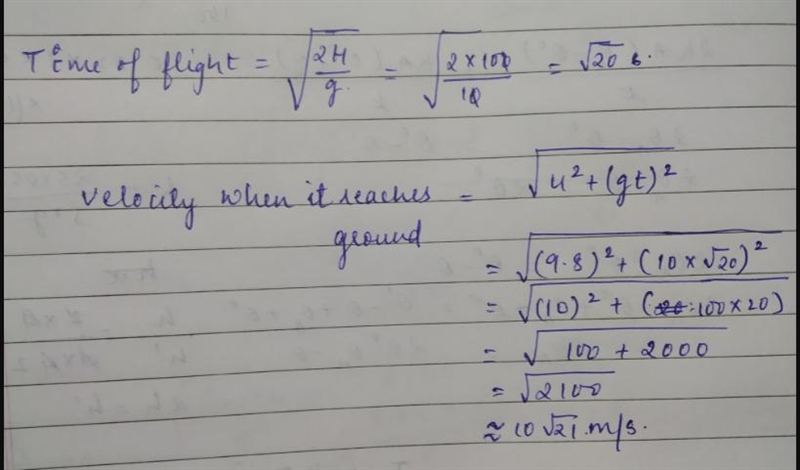 Time of flight = √(2H/g) = √(2×100/10) = √20 s.
velocity when it reaches ground = √(u² + (gt)²)
= √((9.8)² + (10×√20)²)
= √((10)² + (100×20))
= √(100 + 2000)
= √2100
≈ 10√21 m/s.